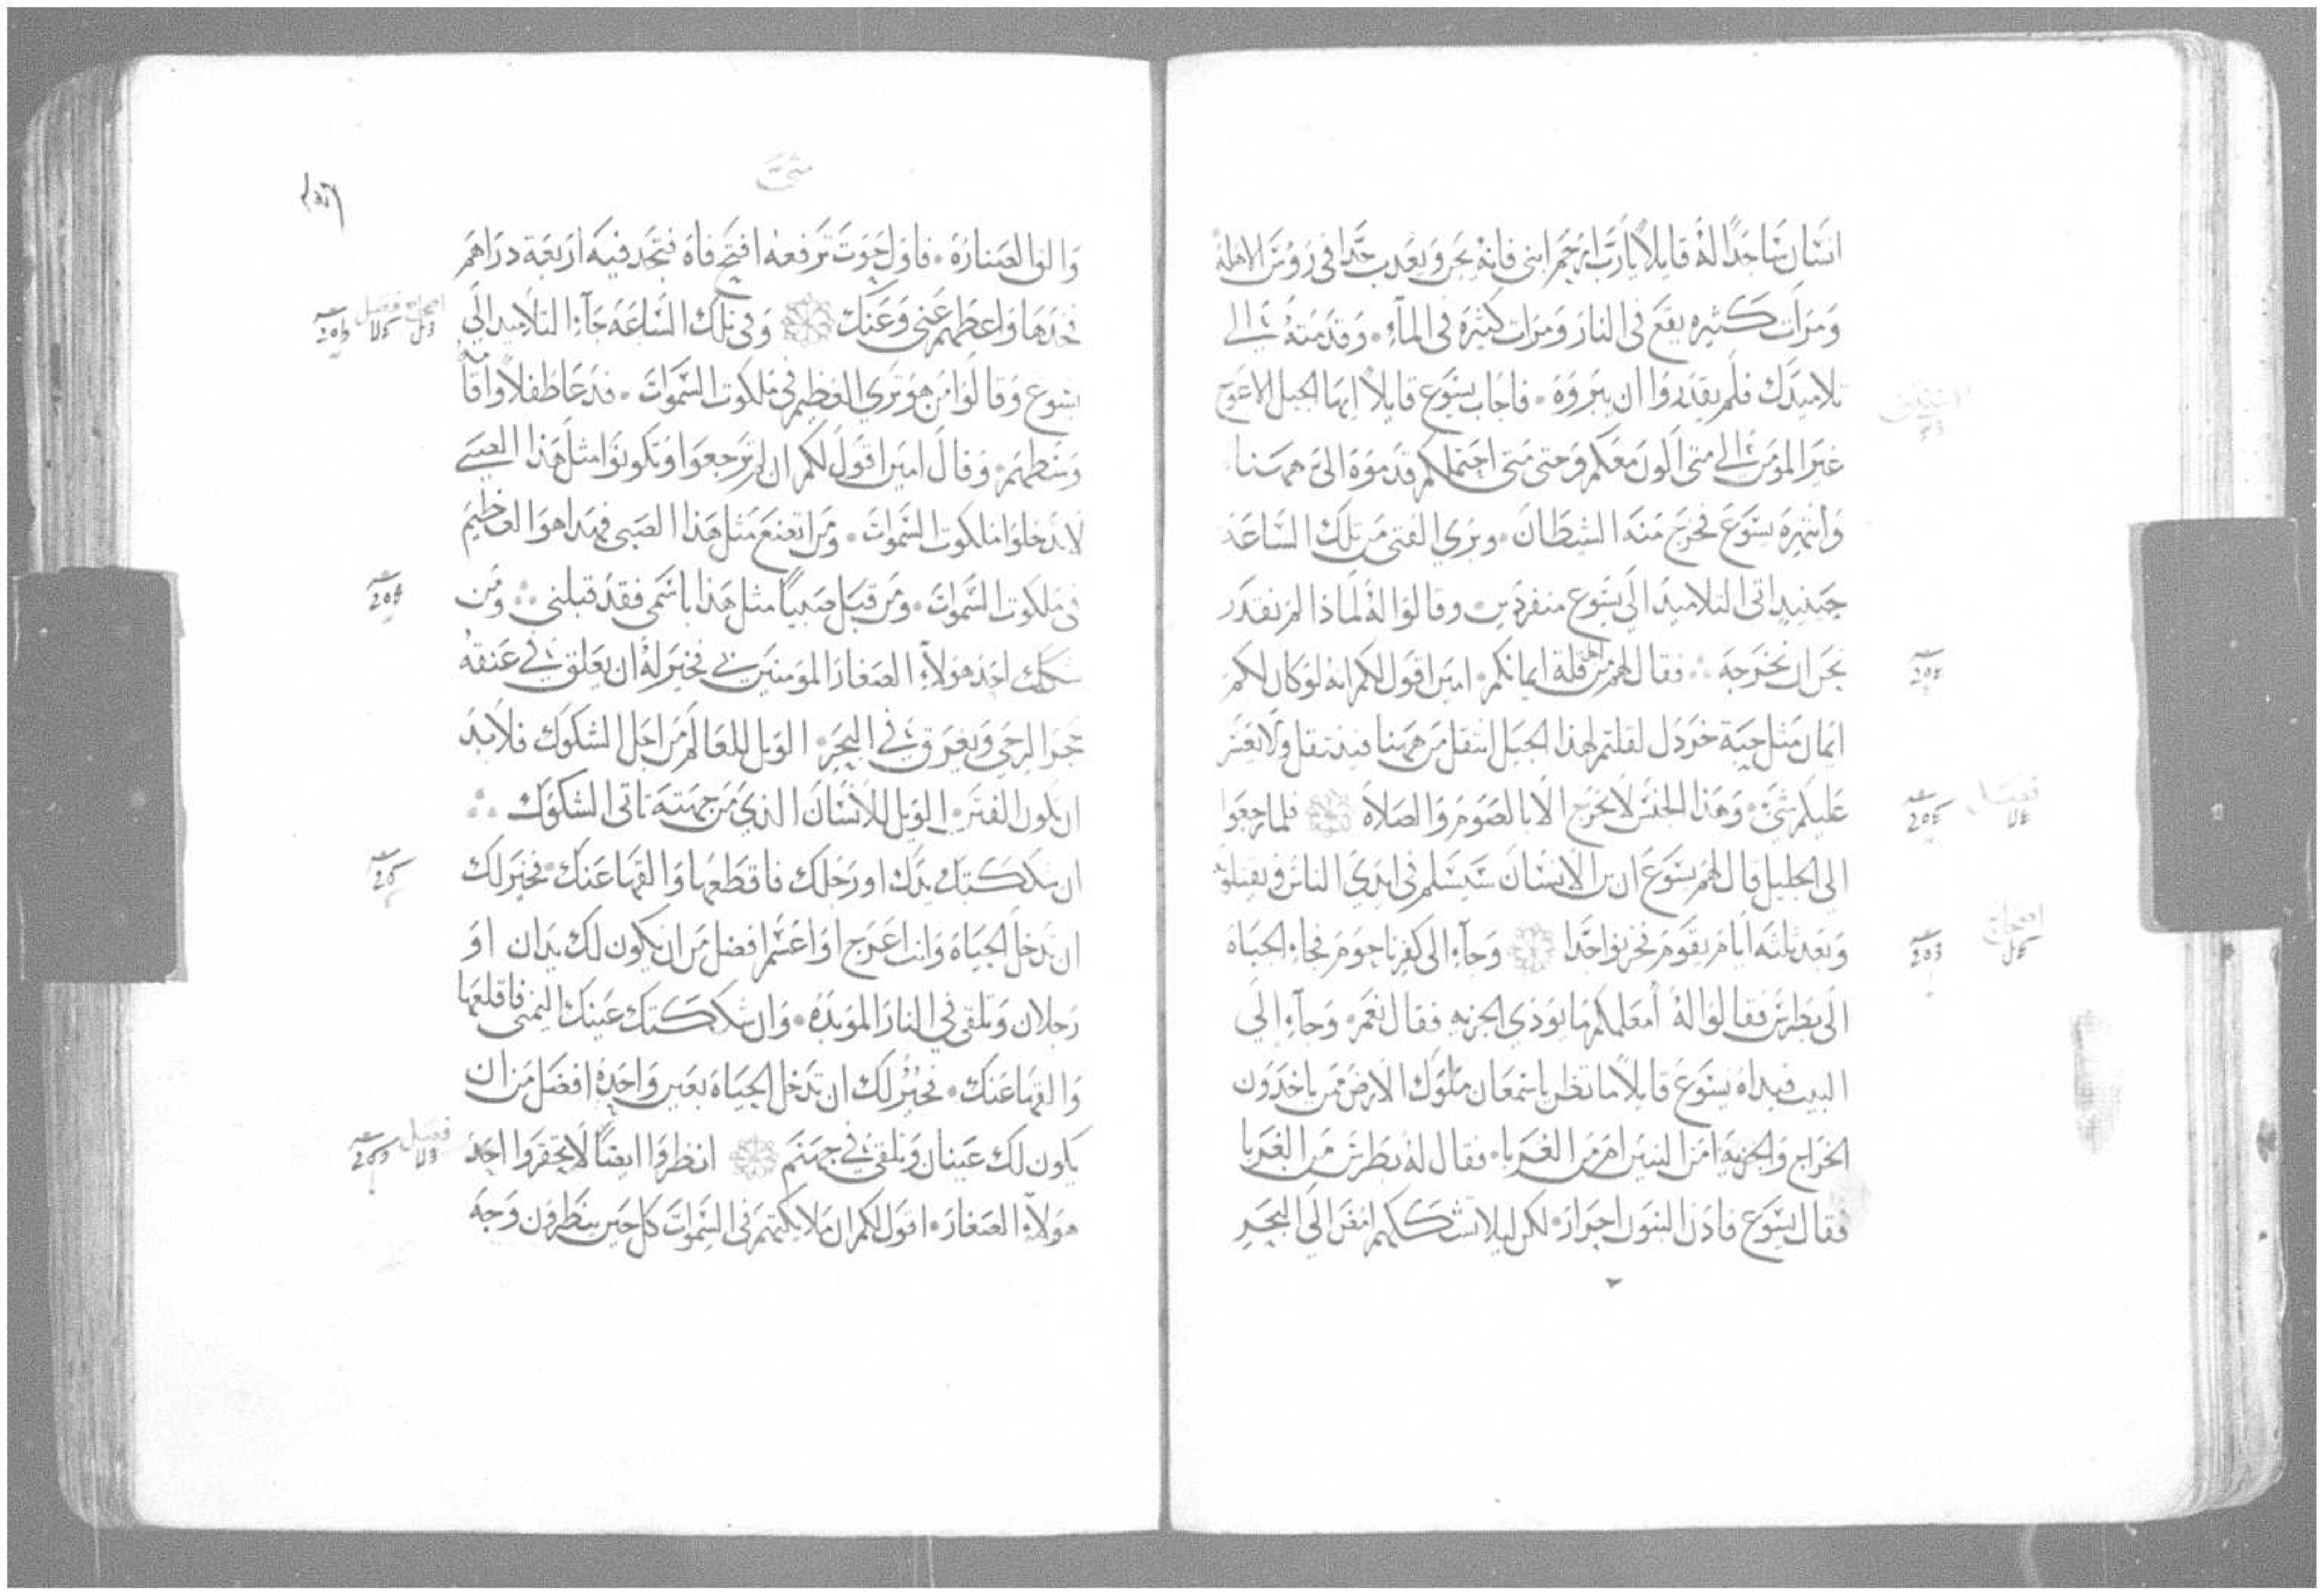 انسان ساجدا له قايلا يا رب ارحم ابني فانه يجن ويعذب جدا في روس الاهله
ومرات كثيره يقع في النار ومرات كثيره في المآء . وقدمته الي
تلاميدك فلم يقدروا ان يبروه . فاجاب يسوع قايلا ايها الجيل الاعوج
غير المومن الي متى اكون معكم وحتى متى احتملكم قدموه الي هاهنا
وانتهره يسوع فخرج منه الشيطان . وبري الفتى من تلك الساعه
حينيد اتى التلاميد الى يسوع منفردين . وقالوا له لماذا لم نقدر
نحن ان نخرجه . فقال لهم من اجل قلة ايمانكم . امين اقول لكم انه لو كان لكم
ايمان مثل حبة خردل لقلتم لهذا الجبل انتقل من ههنا فينتقل ولا يعسر
عليكم شي . وهذا الجنس لا يخرج الا بالصوم والصلاة فلما رجعوا
الى الجليل قال لهم يسوع ان بن الانسان سيسلم في ايدي الناس ويقتلوه
وبعد ثلثه ايام يقوم فحزنوا جدا وجاء الى كفرناحوم فجاء الجباه
الى بطرس فقالوا له أمعلمكم ما يودي الجزيه فقال نعم . وجاء الي
البيت فبداه يسوع قايلا ما تظن ياسمعان ملوك الارض ممن ياخدون
الخراج والجزيه امن البنين ام من الغربا . فقال له بطرس من الغربا
فقال يسوع فادن البنون احرار . لكن ليلا نشككهم امض الي البحر
فصل
متى
والق الصناره . فاول حوت ترفعه افتح فاه فتجد فيه اربعة دراهم
فخدها واعطهم عني وعنك وفي تلك الساعه جآء التلاميد الي
يسوع وقالوا من هو تري العظيم في ملكوت السموات . فدعا طفلا واقا
وسطهم . وقال امين اقول لكم ان لم ترجعوا وتكونوا مثل هذا الصبي
لا تدخلوا ملكوت السموات . ومن اتضع مثل هذا الصبي فهدا هو العظيم
في ملكوت السموات . ومن قبل صبيا مثل هذا باسمي فقد قبلني . ومن
شكك احد هولاء الصغار المومنين بي فخير له ان يعلق في عنقه
حجر الرحي ويغرق في البحر . الويل للعالم من اجل الشكوك فلا بد
ان تكون الفتن . الويل للانسان الذي من جهته تاتي الشكوك
ان شككتك يدك او رجلك فاقطعها والقها عنك . فخير لك
ان تدخل الحياه وانت اعرج او اعسم افضل من ان يكون لك يدان او
رجلان وتلقى في النار الموبده . وان شككتك عينك اليمنى فاقلعها
والقها عنك . فخير لك ان تدخل الحياه بعين واحده افضل من ان
يكون لك عينان وتلقى في جهنم انظروا ايضا لا تحقروا احد
هولاء الصغار . اقول لكم ان ملايكتهم في السموات كل حين ينظرون وجه
فصل
فصل